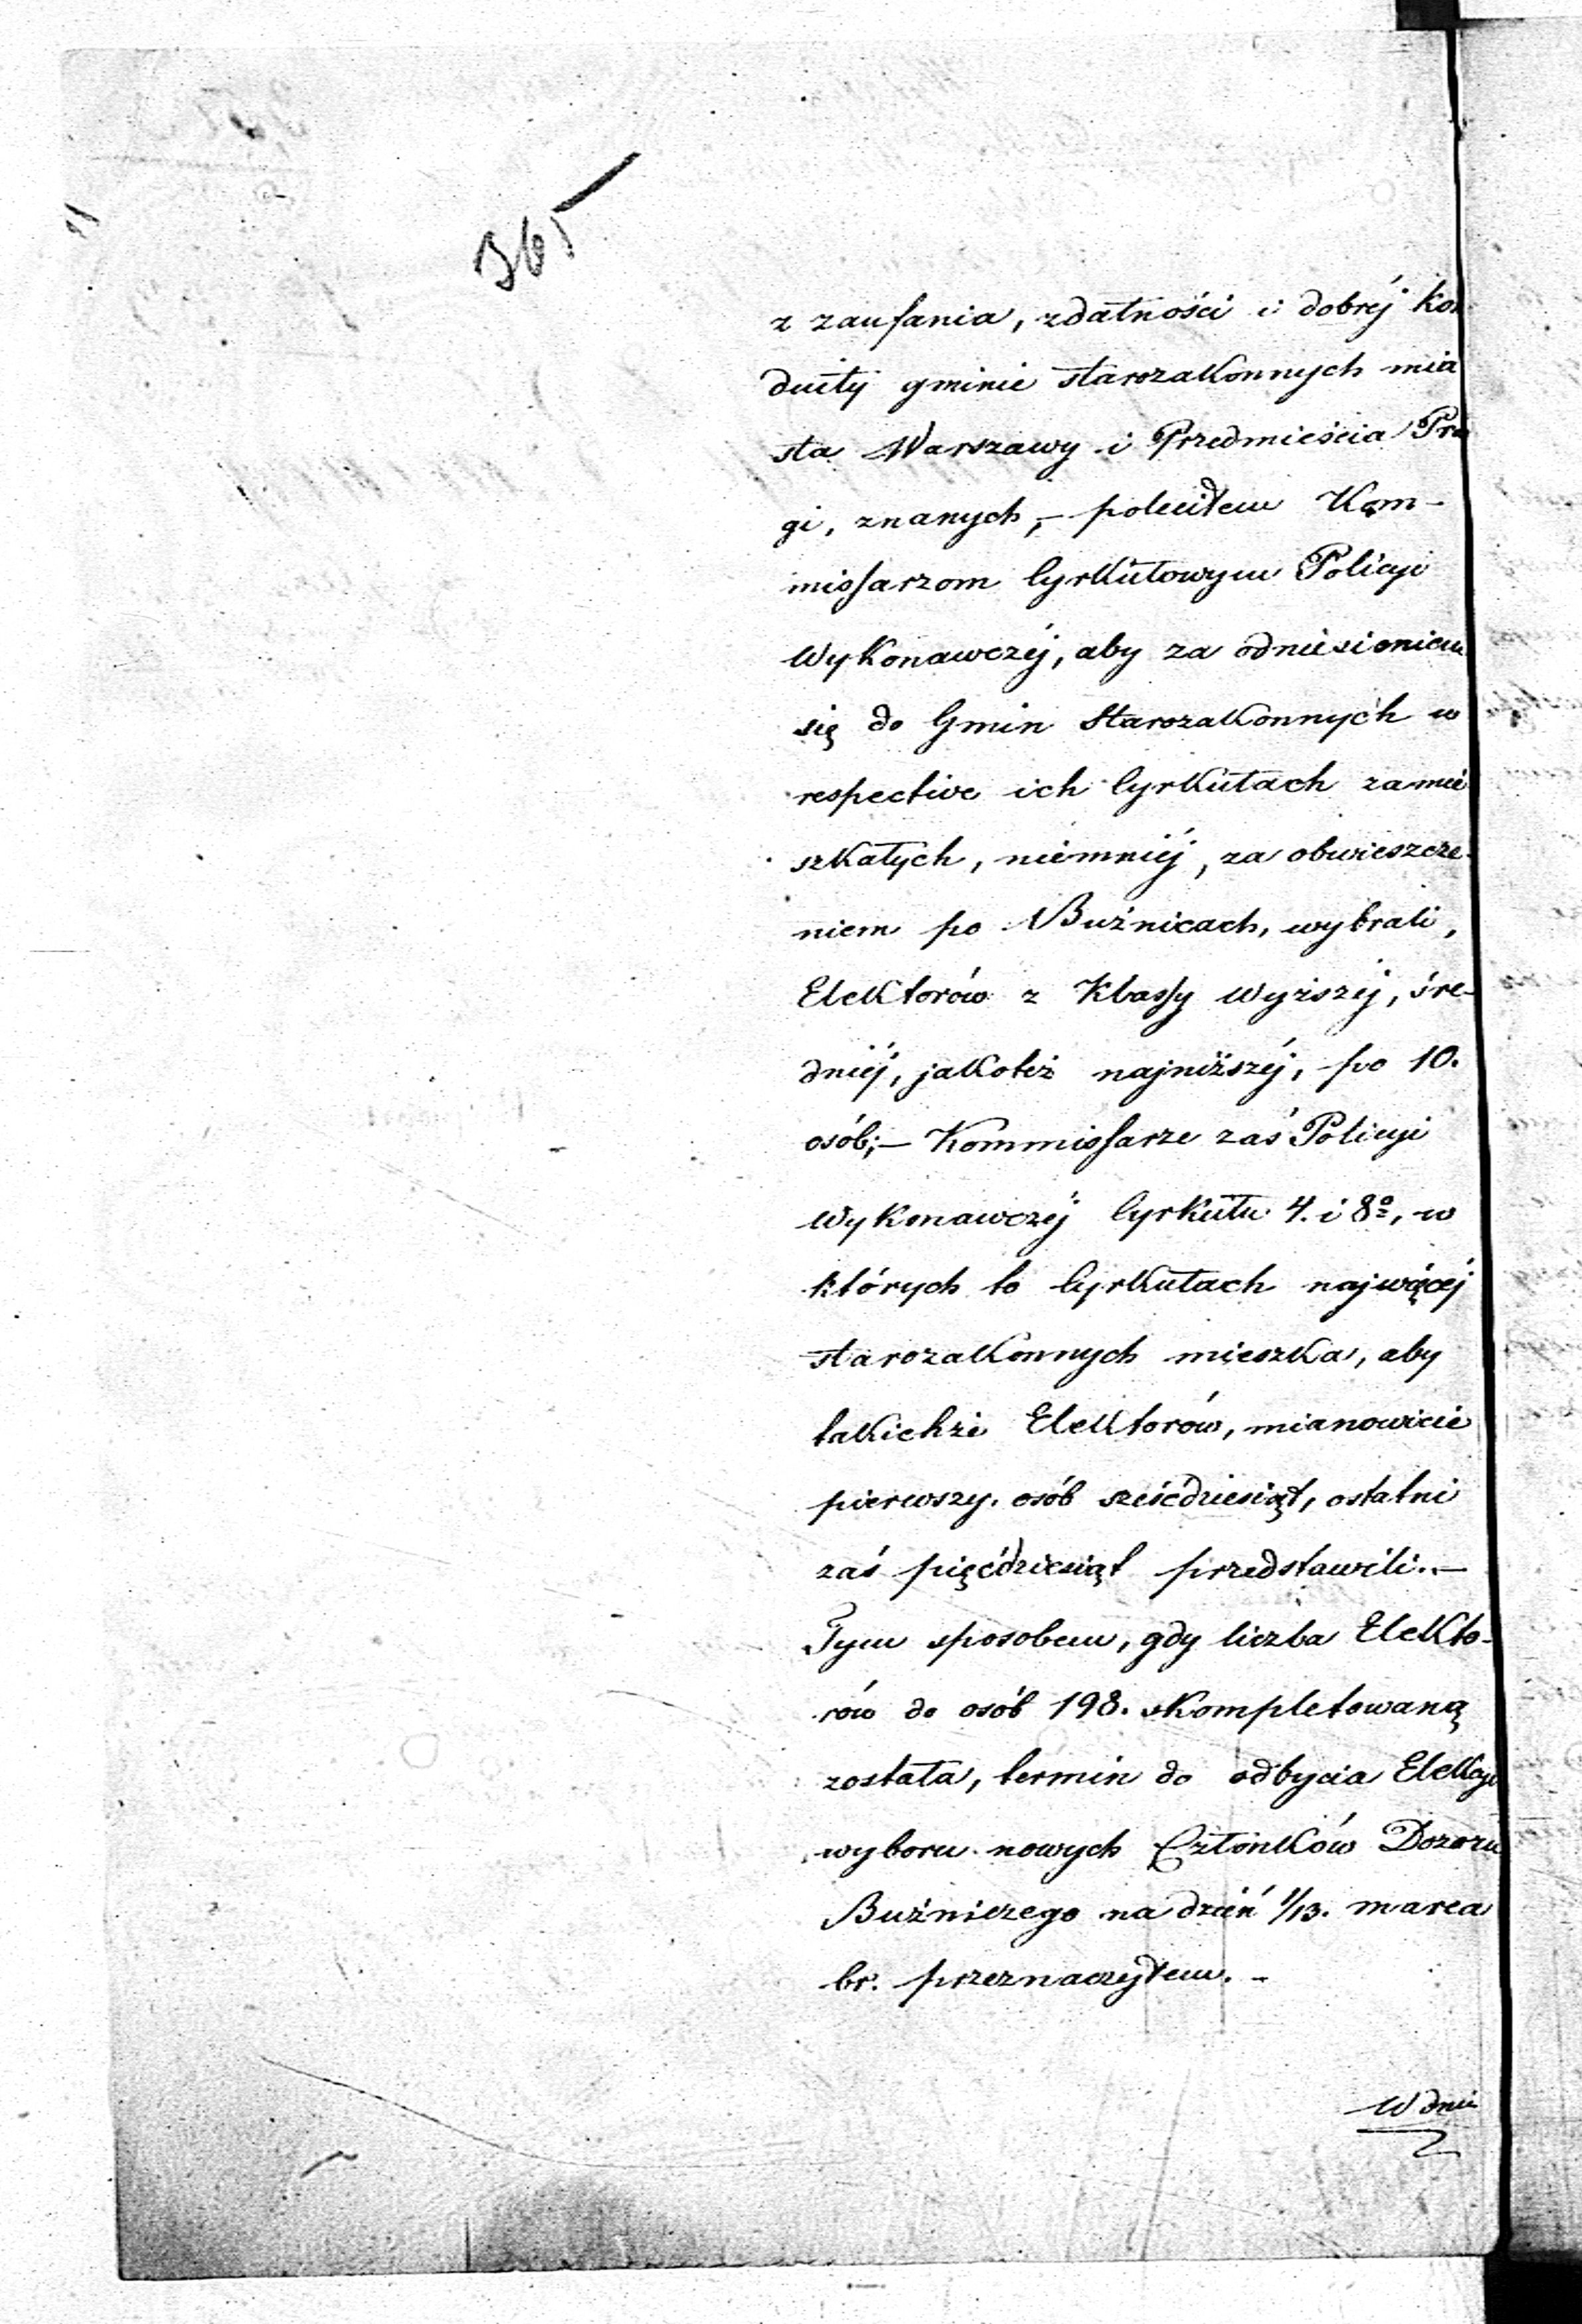 365
z zaufania, zdatności i dobréj kon
duity gminie starozakonnych mia
sta Warszawy i Przedmieścia Pra
gi, znanych, – poleciłem Kom–
missarzom Cyrkułowym Policyi
Wykonawczéj, aby za odniesieniem
się do Gmin Starozakonnych w
respective ich Cyrkułach zamie
szkałych, niemniéj, za obwieszcze
niem po Bużnicach, wybrali,
Elektorów z Klassy wyższéj, śre–
dniéj, jakoteż najniższéj, po 10.
osób; – Kommissarze zaś Policyi
Wykonawczéj Cyrkułu 4. i 8º, w
których to Cyrkułach najwięcéj
starozakonnych mieszka, aby
takichże Elektorów, mianowicie
pierwszy osób sześćdziesiąt, ostatni
zaś pięćdziesiąt przedstawili. –
Tym sposobem, gdy liczba Elekto–
rów do osób 198. skompletowaną
została, termin do odbycia Elekcyi
wyboru nowych Członków Dozoru
Bużniczego na dzień 1/13. marca
br. przeznaczyłem. –
W dniu